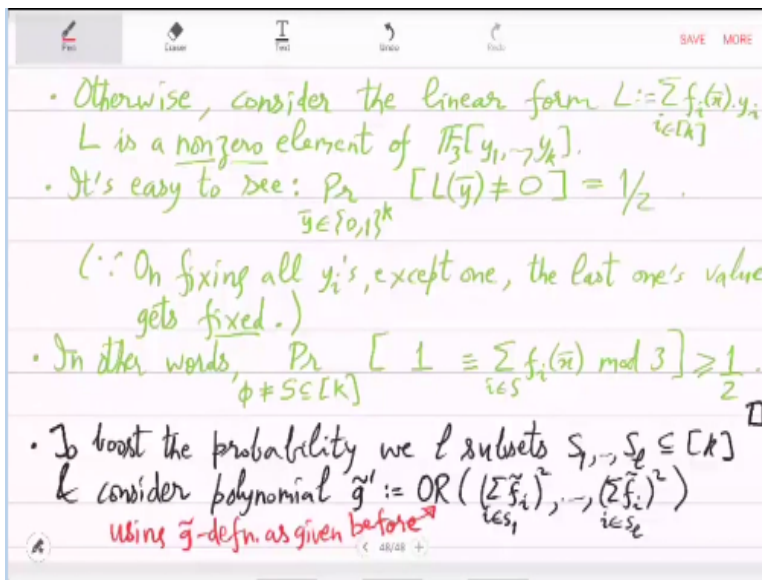 Pen Eraser Text Undo Redo SAVE MORE
• Otherwise, consider the linear form L := Σ_{i∈[k]} f_i(x̄).y_i
L is a nonzero element of 𝔽_3[y_1,..,y_k].
• It's easy to see: Pr_{ȳ∈{0,1}^k} [L(ȳ) ≠ 0] = 1/2.
(∵ On fixing all y_i's, except one, the last one's value
gets fixed.)
• In other words, Pr_{φ≠S⊆[k]} [1 ≡ Σ_{i∈S} f_i(x̄) mod 3] ≥ 1/2.
• To boost the probability we l subsets S_1,..,S_l ⊆ [k]
& consider polynomial g̃' := OR((Σ_{i∈S_1} f̃_i)^2,..,(Σ_{i∈S_l} f̃_i)^2)
using g̃-defn. as given before
< 48/48 +